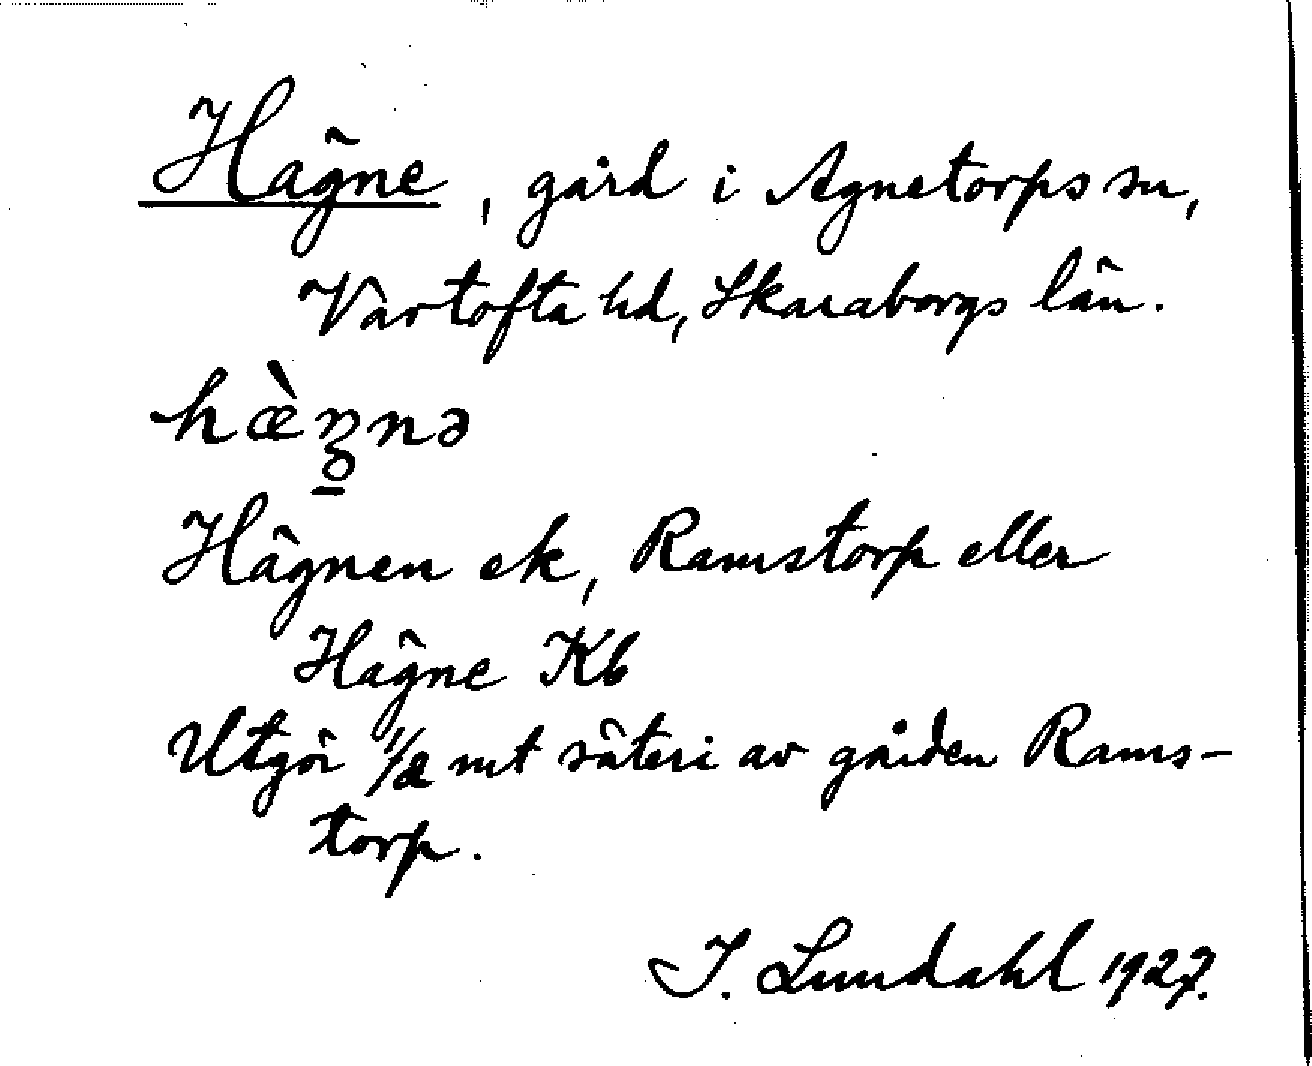 Hägne, gård i Agnetorps sn,
Vartofta hd, Skaraborgs län.
hæ̀ᶎnə
Hägnen ek, Ramstorp eller
Hägne Kb
Utgör mt säteri av gården Rams-
torp.
I. Lundahl 1927.